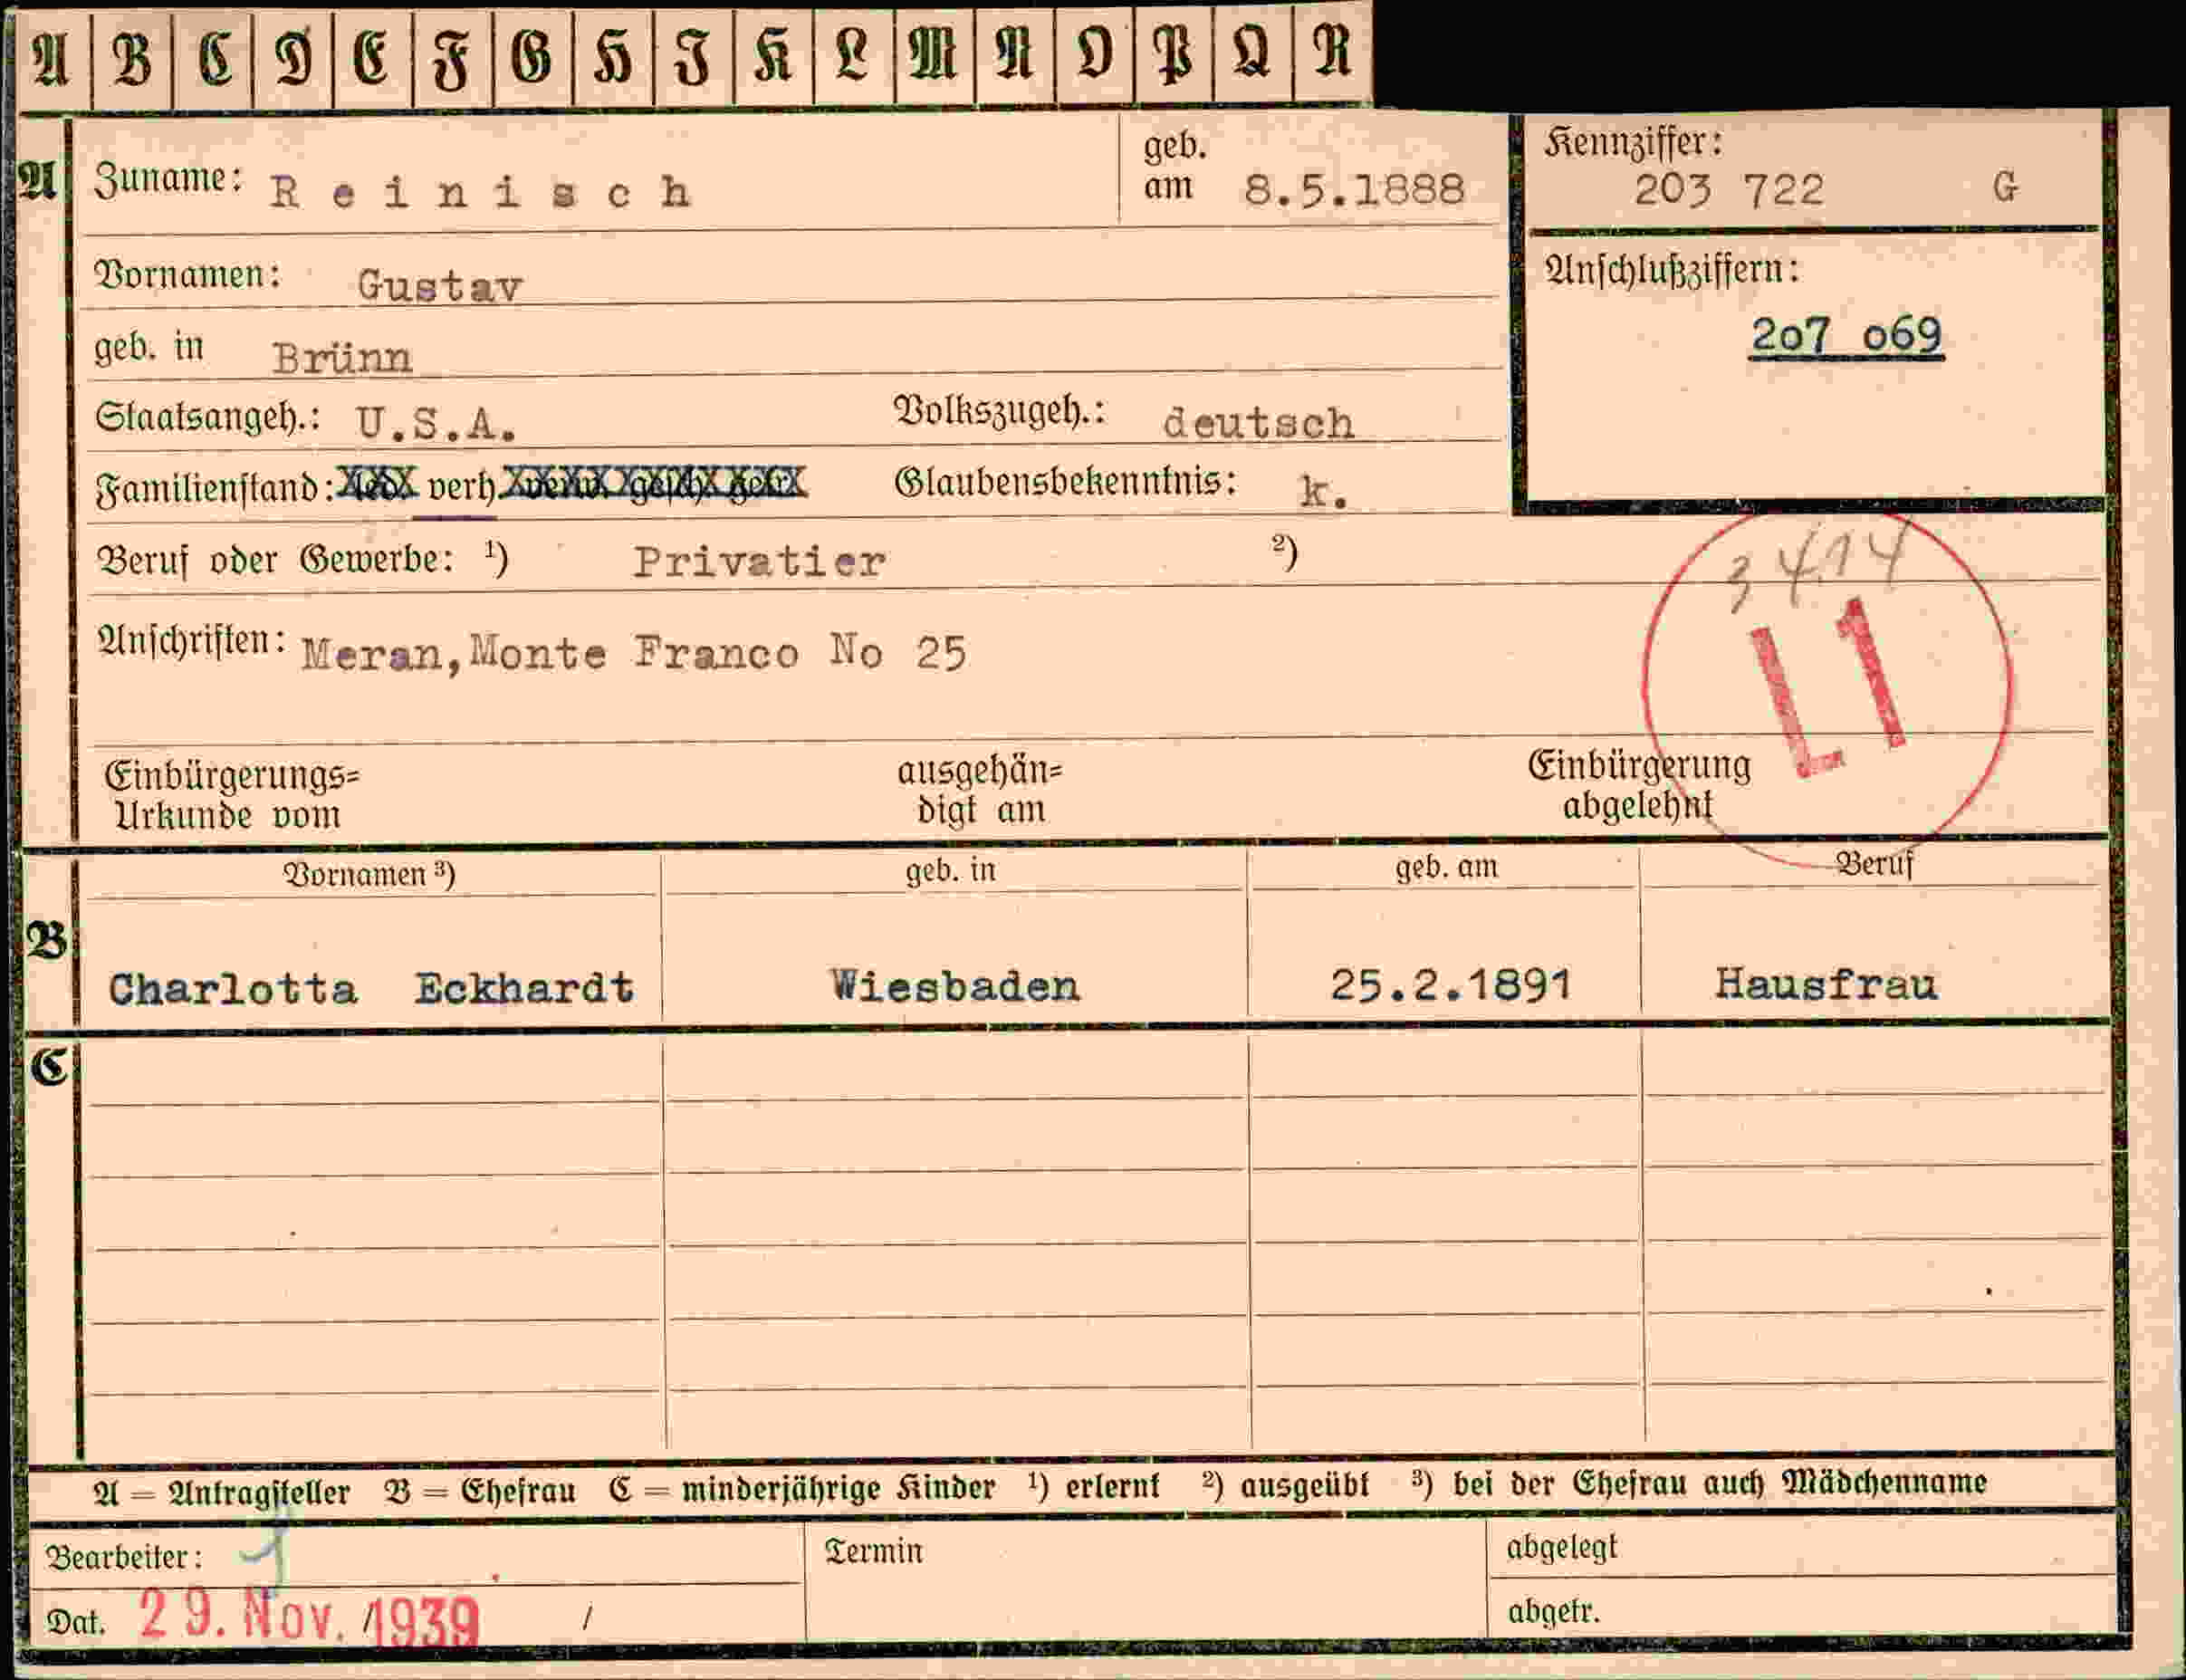 A B C D E F G H I K L M N O P Q R
A Zuname: Reinisch geb. am 8.5.1888
Kennziffer: 203 722 G
Vornamen: Gustav
Anschlußziffern:
207 069
geb. in Brünn
Staatsangeh.: U.S.A. Volkszugeh.: deutsch
Familienstand: led. verh. verw. gesch. getr. Glaubensbekenntnis: k.
Beruf oder Gewerbe: ¹) Privatier ²)
3414
L1
Anschriften: Meran,Monte Franco No 25
Einbürgerungs=
Urkunde vom
ausgehän=
digt am
Einbürgerung
abgelehnt
Vornamen ³) geb. in geb. am Beruf
B Charlotta Eckhardt Wiesbaden 25.2.1891 Hausfrau
C
A = Antragsteller B = Ehefrau C = minderjährige Kinder ¹) erlernt ²) ausgeübt ³) bei der Ehefrau auch Mädchenname
Bearbeiter: Termin abgelegt
Dat. 29. Nov. 1939 / abgetr.